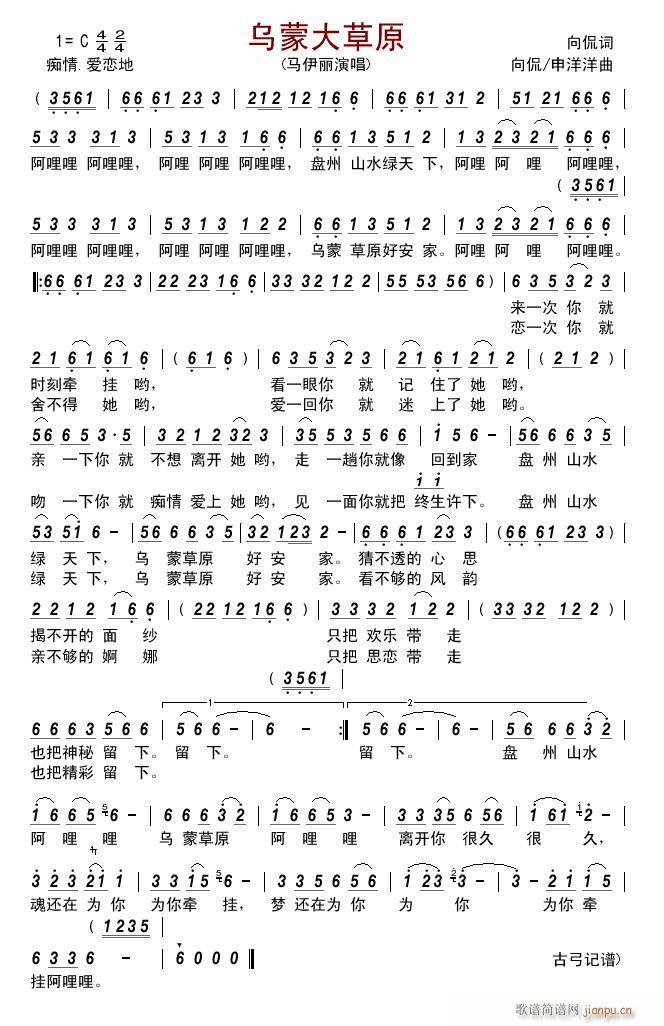 乌蒙大草原
1= C 4/4 2/4
向侃词
痴情.爱恋地
(马伊丽演唱)
向侃/申洋洋曲
( 3561 | 66 61 23 3 | 212 12 16 6 | 66 61 31 2 | 51 21 66 6 |
5 3 3 3 1 3 | 5 3 3 3 1 2 1 6 6 | 6 6 1 3 5 3 1 2 | 1 3 2 3 2 1 6 6 6 |
阿哩哩 阿哩哩， 阿哩 阿哩 阿哩哩， 盘州 山水绿天 下，阿哩 阿 哩 阿哩哩，
( 3561 |
5 3 3 3 1 3 | 5 3 3 3 1 2 2 | 6 6 1 3 5 3 1 2 | 1 3 2 3 2 1 6 6 6 |
阿哩哩 阿哩哩， 阿哩 阿哩 阿哩哩， 乌蒙 草原好安 家。阿哩 阿 哩 阿哩哩。
‖: 66 61 23 3 | 22 23 16 6 | 33 33 12 2 | 55 53 56 6 ) | 6 3 5 3 2 3
来一次 你 就
恋一次 你 就
2 1 6 1 6 1 6 | ( 6 1 6 ) | 6 3 5 3 2 3 | 2 1 6 1 6 5 6 | ( 6 5 6 ) |
时刻牵 挂 哟， 看一眼你 就 记 住了 她 哟，
舍不得 她 哟， 爱一回你 就 迷 上了 她 哟。
56 6 5 3· 5 | 3 2 1 2 3 2 3 | 3 5 5 3 5 6 6 | 1 5 6 - | 56 6 6 3 5
亲 一下你 就 不想 离开 她 哟，走 一趟你就像 回到家 盘 州 山水
1 1
吻 一下你 就 痴情 爱上 她 哟，见 一面你就把 终生许下。 盘 州 山水
53 51 6 - | 56 6 6 3 5 | 32 123 - | 6 6 6 1 2 3 | ( 66 61 23 3 ) |
绿 天 下， 乌 蒙草原 好 安 家。猜不透的 心 思
绿 天 下， 乌 蒙草原 好 安 家。看不够的 风 韵
2 2 1 2 1 6 6 | ( 22 12 16 6 ) | 3 3 3 3 1 2 2 | ( 33 32 12 2 |
揭不开的 面 纱 只把 欢乐 带 走
亲不够的 婀 娜 只把 思恋 带 走
( 3561 |
1 2
6 6 6 3 5 6 6 | 5 6 6 - | 6 - - :‖ 5 6 6 - | 6 - 56 6 6 3 2
也把神秘 留 下。留 下。 留 下。 盘 州 山水
也把精彩 留 下。
1 6 6 5 6 - | 6 6 6 3 2 | 1 6 6 5 3 - | 3 3 3 5 5 6 | 1 61 2 - |
阿 哩 哩 乌 蒙草原 阿 哩 哩 离开你 很久 很 久，
3 2 3 21 1 | 3 3 3 5 6 - | 3 3 5 6 5 6 | 1 23 3 - | 3 - 2 1 1 5 |
魂还在 为 你 为你牵 挂， 梦 还在为 你 为 你 为你牵
( 1235 |
6 3 3 6 - | 6 0 0 0 ‖
挂阿哩哩。
古弓记谱)
歌谱简谱网
jianpu.cn